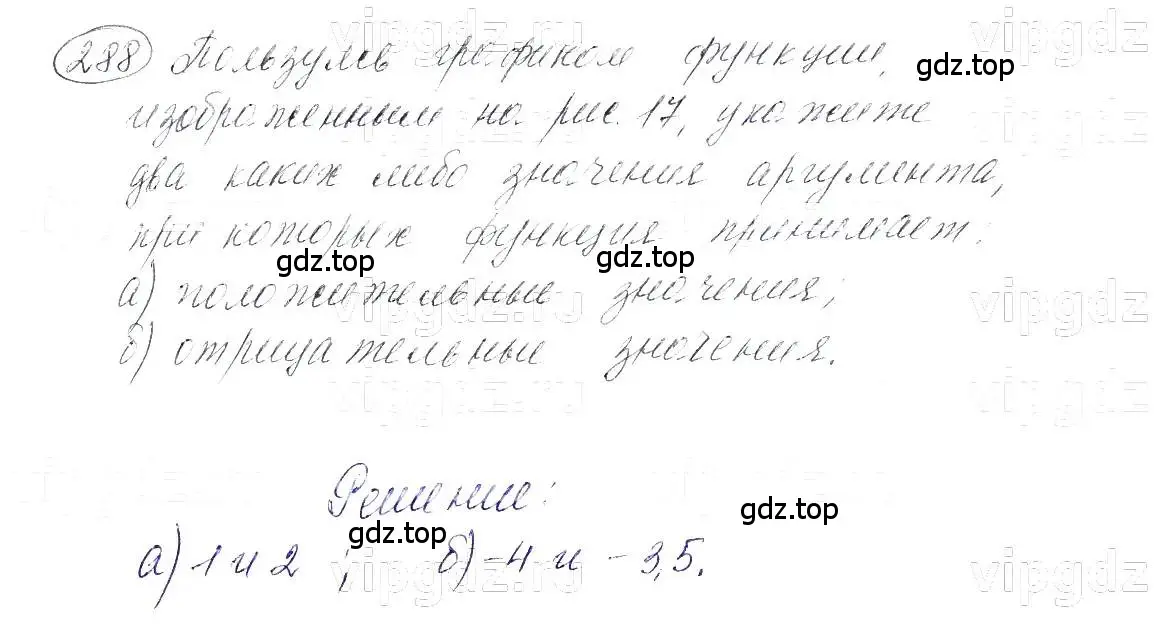 288 Пользуясь графиком функции,
изображенным на рис. 17, укажите
два каких либо значения аргумента,
при которых функция принимает:
а) положительные значения;
б) отрицательные значения.
Решение:
а) 1 и 2 ; б) -4 и -3,5.
gdz.top
gdz.top
gdz.top
gdz.top
gdz.top
vipgdz.ru